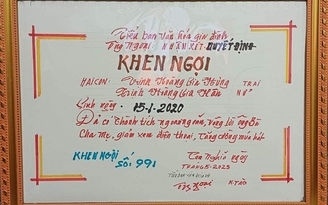 Tiểu ban văn hóa gia đình
Ông Ngoại NHẬN XÉT QUYẾT ĐỊNH
KHEN NGỢI
HAI CON: Trịnh Hoàng Gia Hưng TRAI
Trịnh Hoàng Gia Hân NỮ
Sinh ngày 15-1-2020
Đã có thành tích ngoan ngoãn, vâng lời ông bà
Cha mẹ, giảm xem điện thoại, tăng cường múa hát
KHEN NGỢI
SỐ: 991
ngày
THÁNG 5-2023
Ông Ngoại